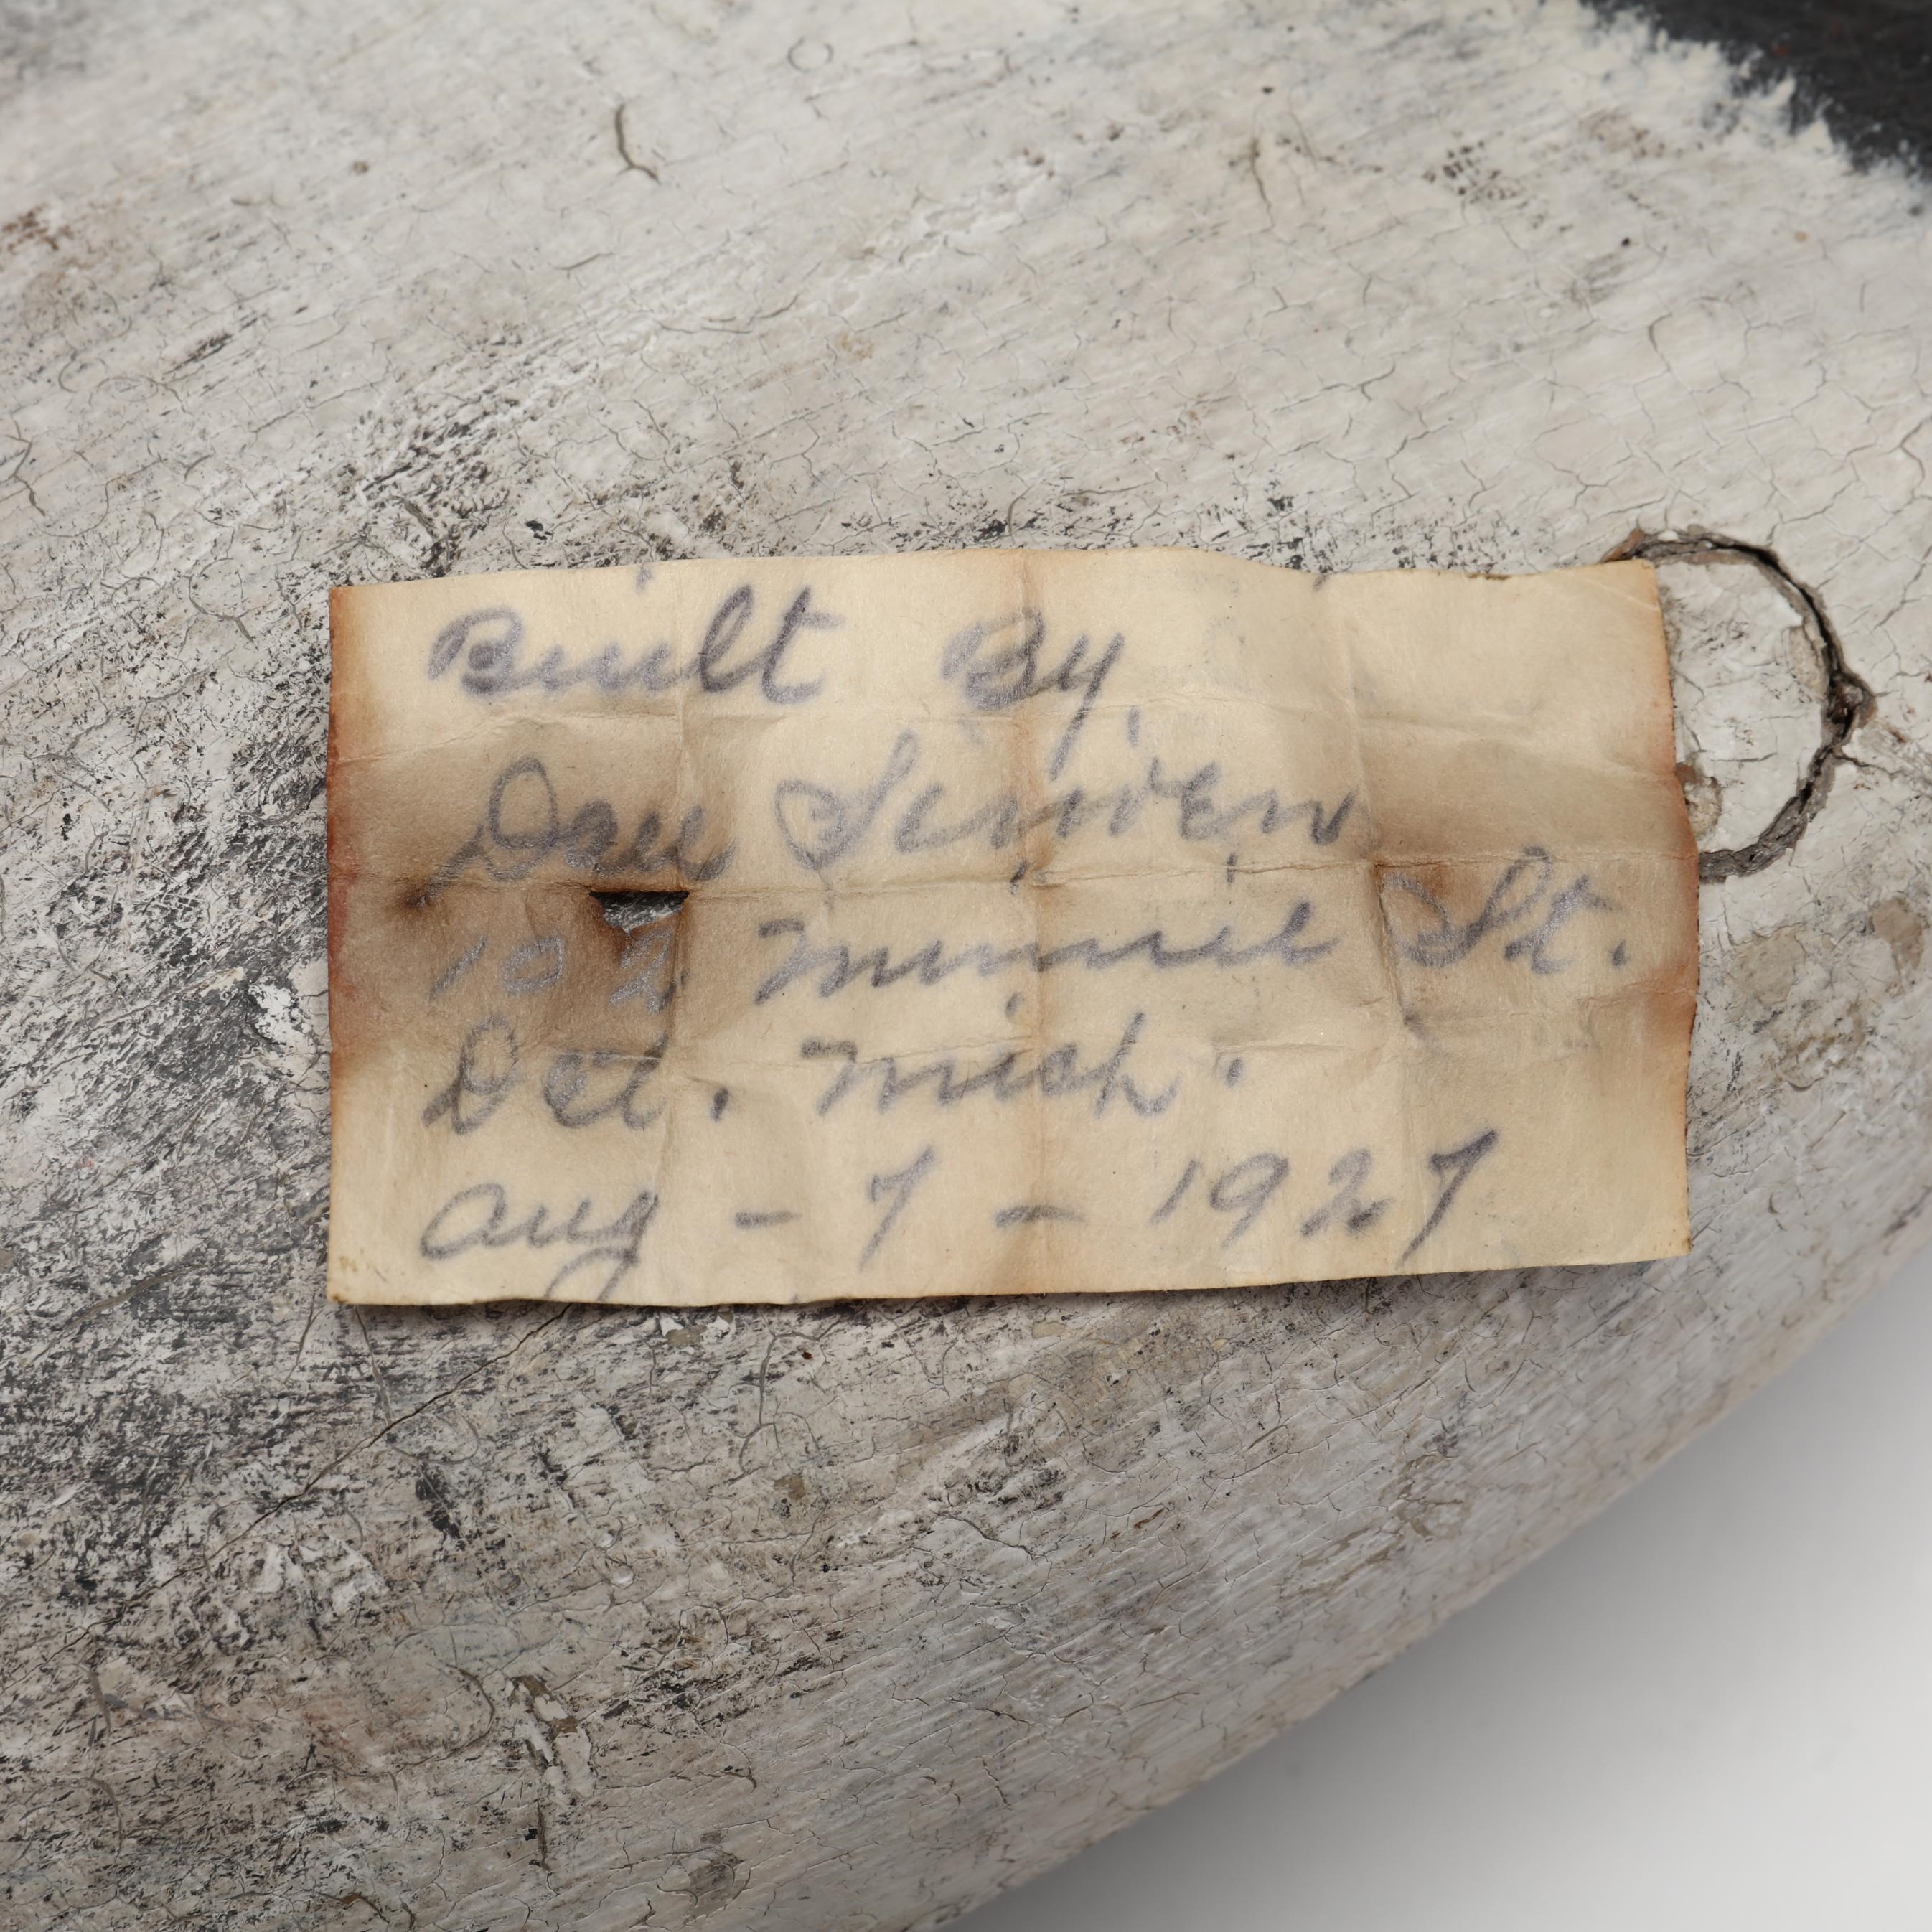 Built By,
Dan Scriven
102 Minnie St.
Det. Mich.
Aug - 7 - 1927